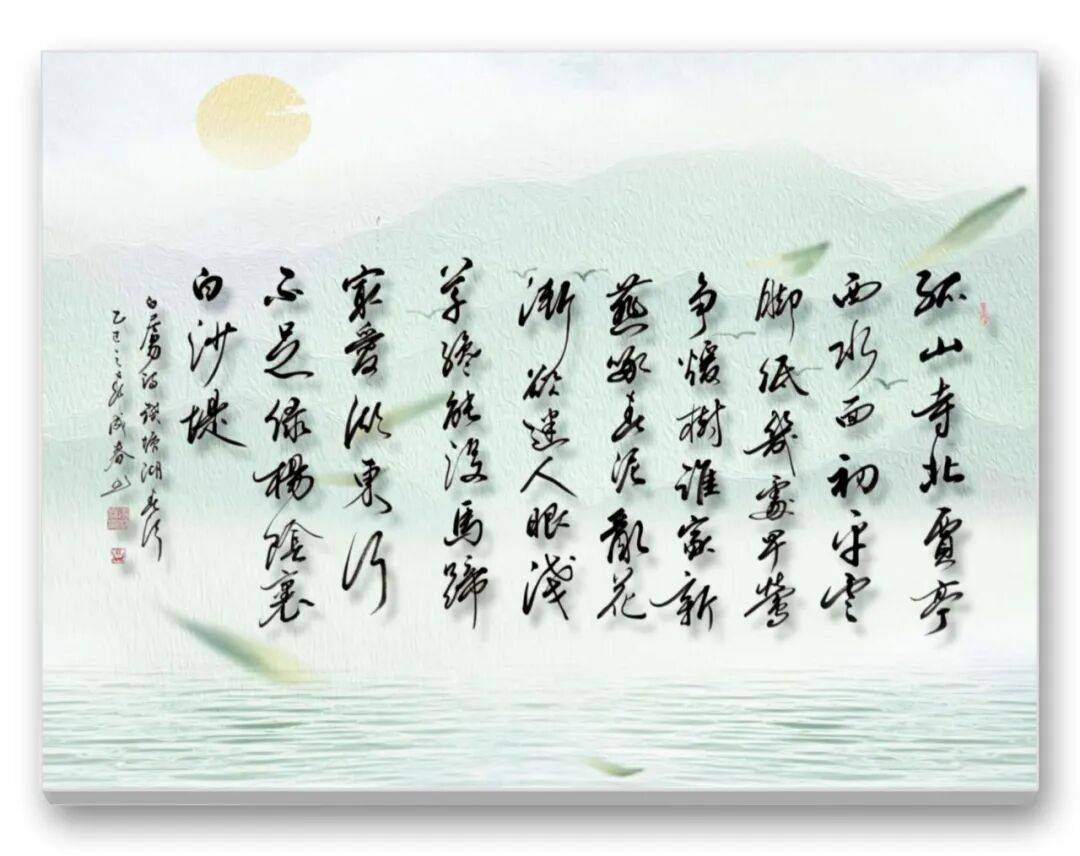 孤山寺北賈亭
西水面初平雲
腳低幾處早鶯
爭暖樹誰家新
燕啄春泥亂花
漸欲迷人眼淺
草纔能沒馬蹄
最愛湖東行
不足綠楊陰裏
白沙堤
白居易詩錢塘湖春行
乙巳之秋成春书